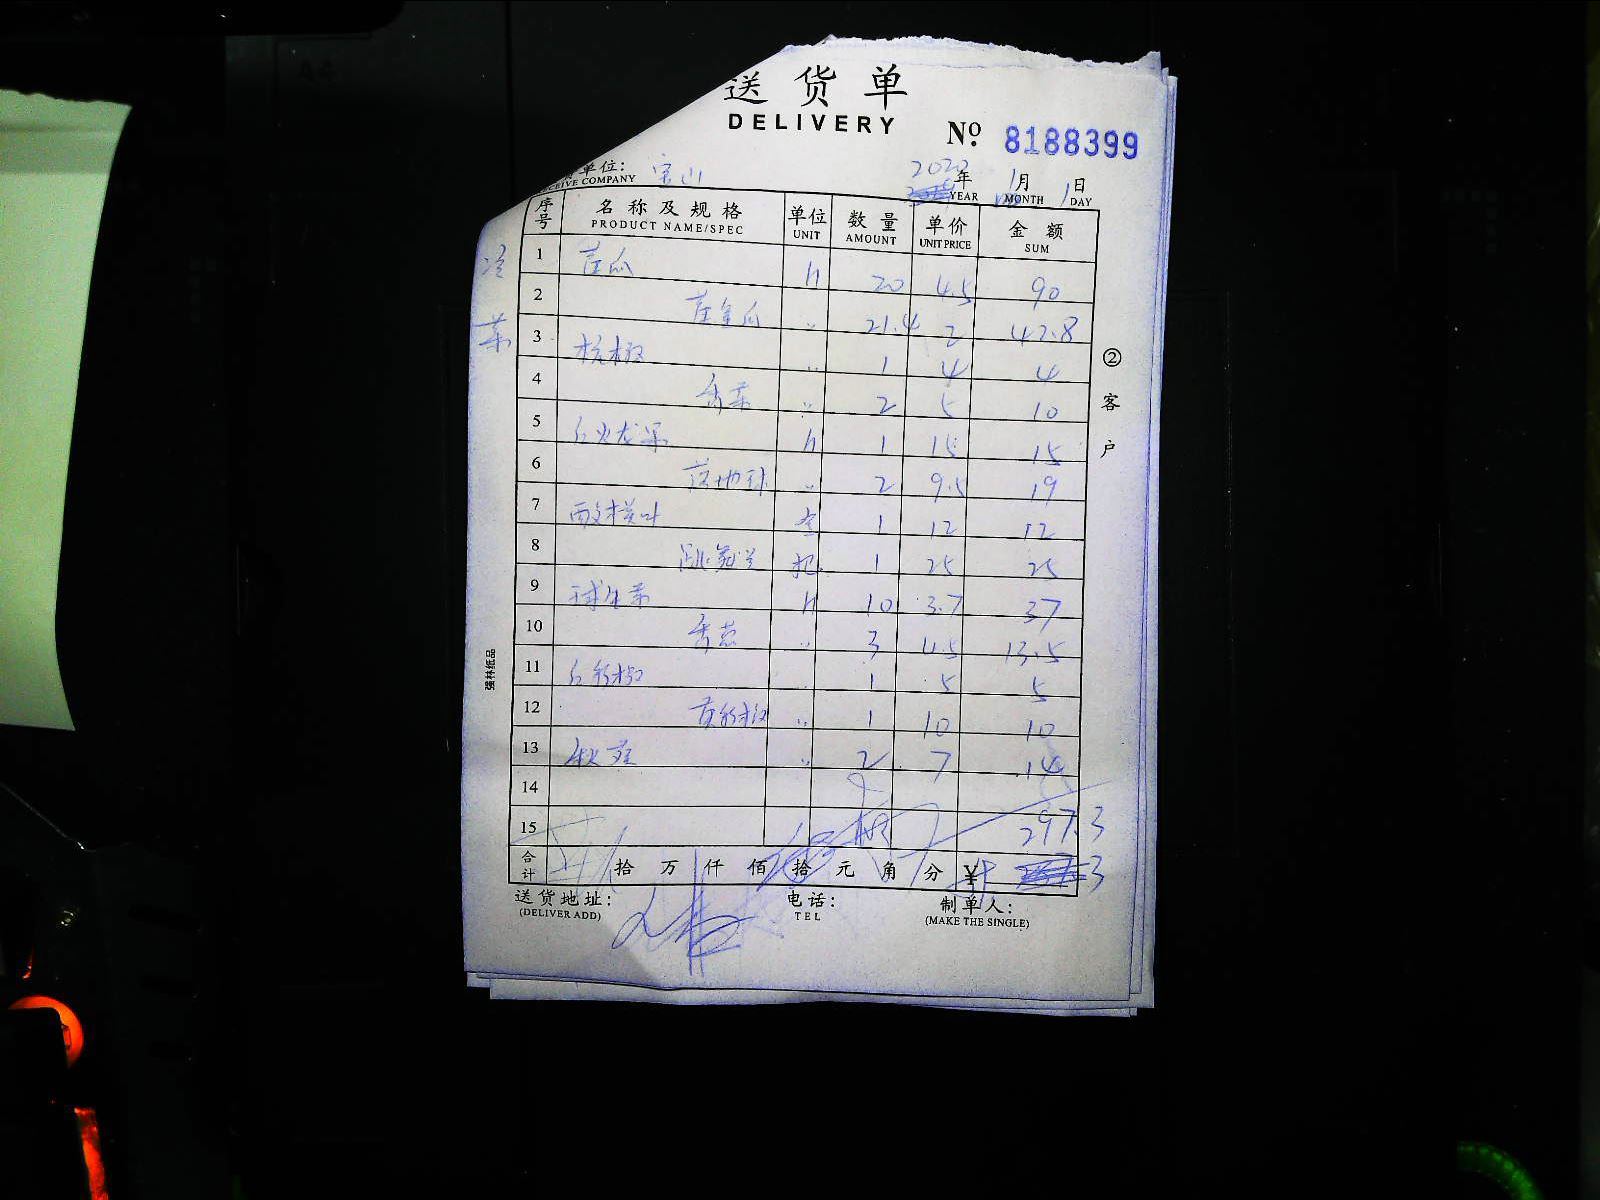 送货单
DELIVERY
No. 8188399
单位: 宝山
RECEIVE COMPANY
2022年 1月 1日
YEAR MONTH DAY
冷菜
序号 名称及规格 单位 数量 单价 金额
PRODUCT NAME/SPEC UNIT AMOUNT UNIT PRICE SUM
1 20 4.5 90
2 21.4 2 42.8
3 杭椒 1 4 4
4 香菜 2 5 10
5 红火龙果 1 15 15
6 2 9.5 19
7 1 12 12
8 把 1 25 25
9 球生菜 10 3.7 37
10 香葱 3 4.5 13.5
11 1 5 5
12 1 10 10
13 秋葵 2 7 14
14
15 297.3
合计 拾 万 仟 佰 拾 元 角 分 ¥
送货地址: 电话: 制单人:
(DELIVER ADD) TEL (MAKE THE SINGLE)
②客户
强林纸品